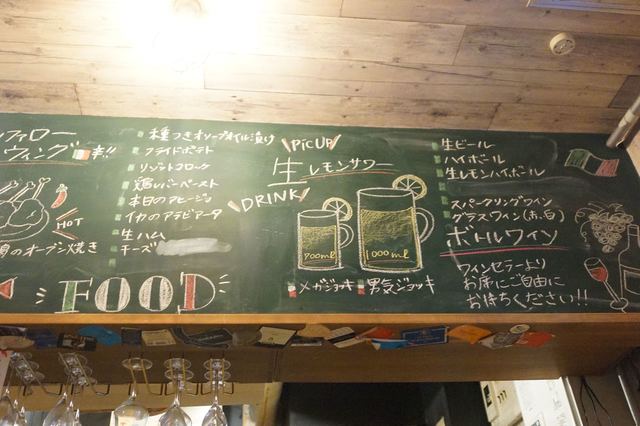 ファロー
ウィング 辛!!
HOT
のオーブン焼き
種つきオリーブオイル漬け
フライドポテト
リゾットコロッケ
鶏レバーペースト
本日のアヒージョ
イカのアラビアータ
生ハム
チーズ
FOOD
PiCUP
生レモンサワー
DRINK
700ml
1000ml
メガジョッキ
男気ジョッキ
生ビール
ハイボール
生レモンハイボール
スパークリングワイン
グラスワイン(赤、白)
ボトルワイン
ワインセラーより
お席にご自由に
お持ちください!!